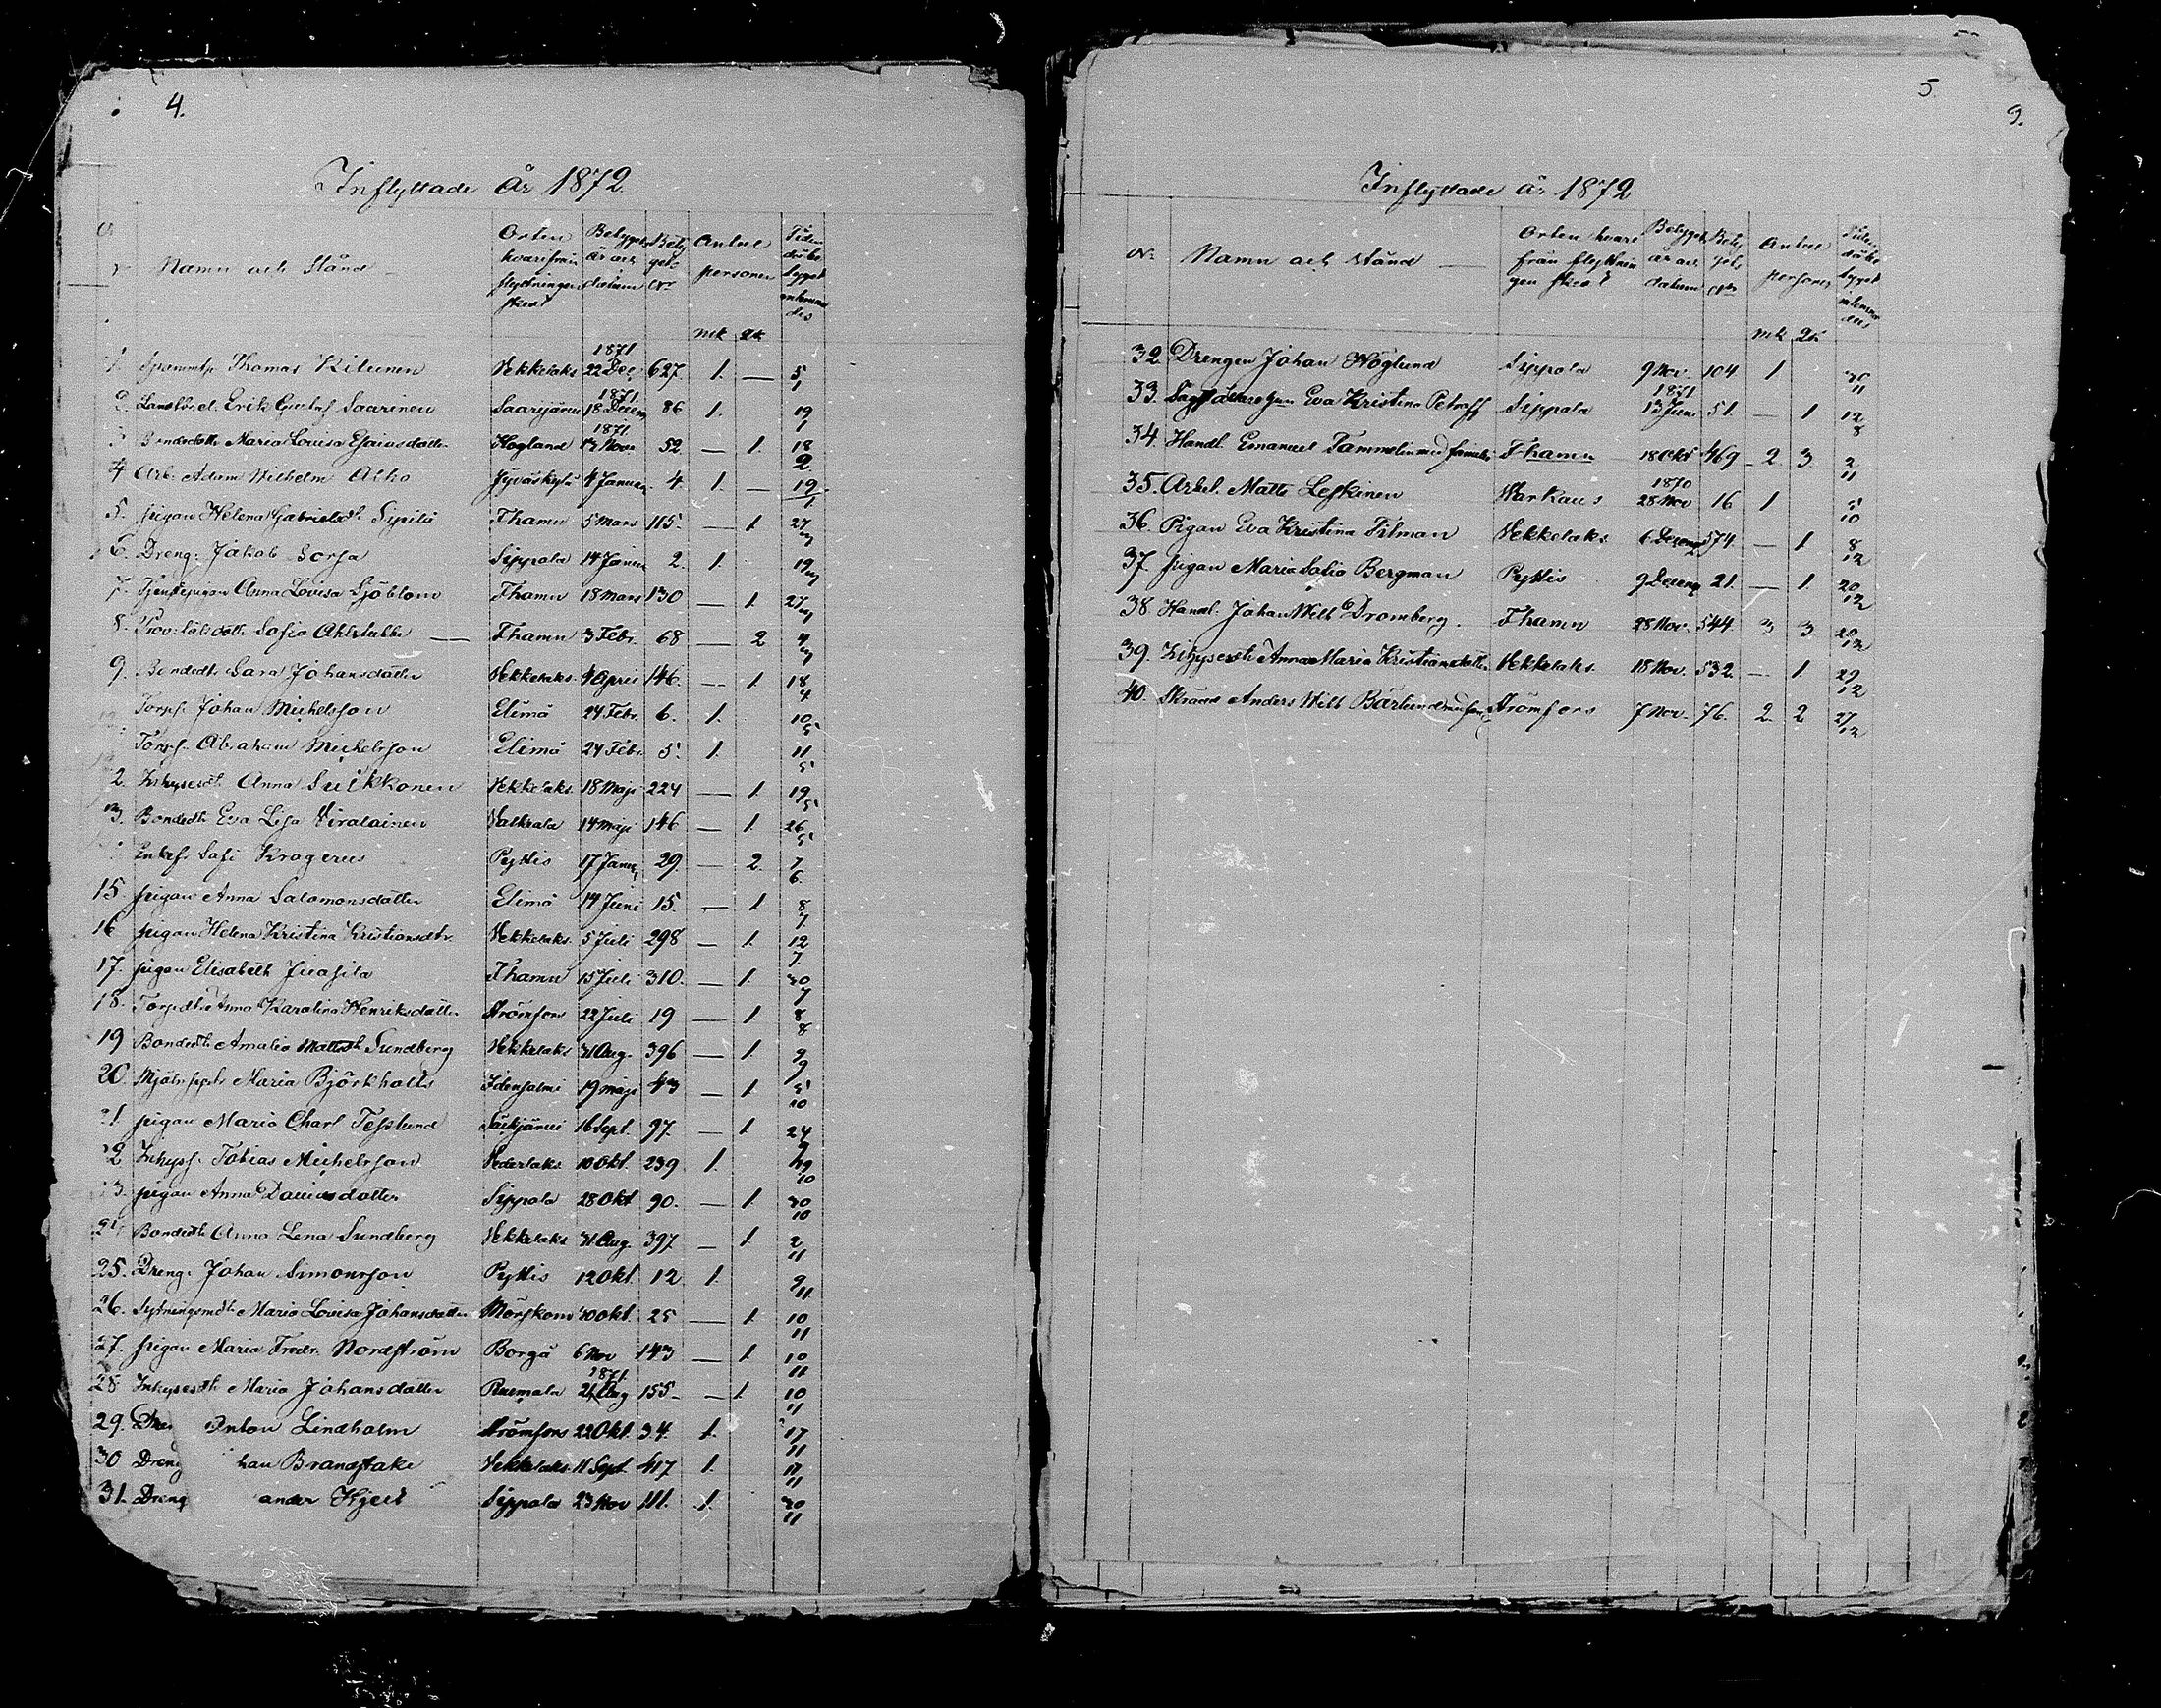 4.
Inflyttade År 1872.
Nr Namn och Stånd Orten hvarifrån flyttningen skett Betygets år och datum Betygets Nr Antal personer mk qk Tiden då betyget inlemnades
1. Thomas Kitunen Vekkelaks 1871 22 Dec 627. 1. — 5/1
2. Erik Gustaf Saarinen Saarijärvi 1871. 18 Decem 86 1. 19/1
3 Bondedottr Maria Lovisa Esaiasdotter Hogland 1871. 13 Novr 52. — 1. 18/2
4 Arb. Adam Wilhelm Alho Jyväskylä 4 Januar 4. 1. — 19/1
5. pigan Helena Gabrielsdtr Sipilä Fhamn 5 Mars 115. — 1. 27/3
6. Dreng. Jakob Sorsa Sippola 14 Janua 2. 1. 19/3
7. Tjenstepigan Anna Lovisa Sjöblom Fhamn 18 Mars 130 — 1. 27/3
8. Sofia Ahlstubbe — Fhamn 3 Febr. 68 — 2 4/3
9. Bondedtr Sara Johansdotter Vekkelaks 4 April 146. — 1. 18/4
10. Torps. Johan Michelsson Elimä 24 Febr. 6. 1. 10/5
Torps. Abraham Michelsson Elimä 24 Febr. 5. 1. 11/5
12 Inhysesdtr. Anna Suikkonen Vekkelaks 18 Maji 224 — 1. 19/5
13. Bondedtr Eva Lisa Viralainen Valkeala 14 Maji 146 — 1. 26/5
Enkefr Sofi Krogerus Pyttis 17 Janua 29. — 2. 7/6.
15. pigan Anna Salomonsdotter Elimä 14 Juni 15. — 1 8/7.
16 pigan Helena Kristina Kristiansdtr. Vekkelaks. 5 Juli 298 — 1. 12/7.
17. pigan Elisabeth Juasila Fhamn 15 Juli 310. — 1. 30/7
18. Torpdtr. Anna Karolina Henriksdotter Strömfors 22 Juli 19 — 1. 8/8
19 Bondedtr Amalia Mattsdtr Sundberg Vekkelaks 31 Aug. 396 — 1. 9/9
20. Maria Björkholtz Idensalmi 19 maji 43 — 1. 5/10
21. pigan Maria Charl Tesslund Säkjärvi 16 Sept. 97. — 1. 24/9
22 Inhyss. Tobias Michelsson Vederlaks 10 Okt. 239 1. 19/10
23. pigan Anna Davidsdotter Sippola 28 Okt 90. — 1. 30/10
24. Bondedtr Anna Lena Sundberg Vekkelaks 31 Aug. 397. — 1 2/11
25. Dreng. Johan Simonsson Pyttis 12 Okt. 12. 1. 9/11
26. Sytningsmdtr Maria Lovisa Johansdotter Mörskom 30 Okt. 25 — 1. 10/11
27. pigan Maria Fredr. Nordström Borgå 6 Nov 143 — 1. 10/11
28 Inhysesdtr Maria Johansdotter Ruemala 1871. 21 Aug 155 — 1. 10/11
29. Dre Anton Lindholm Strömfors 22 Okt. 34. 1. 17/11
30 Dreng han Brandstake Vekkelaks 11 Sept 417 1. 17/11
31. Dreng ander Kjell Sippola 23 Nov 111. 1. 30/11
5.
9.
Inflyttade år 1872
Nr. Namn och stånd — Orten hvarifrån flyttningen skett Betygets år och datum Betygets Nr Antal personer mk qk Tiden då betyget inlemnades
32. Drengen Johan Höglund Sippola 9 Nov. 104 1 30/11
33. Eva Kristina Petroff Sippola 1871 13 Juni 51. — 1 12/8
34. Handl. Emanuel Tammelin med familj Fhamn 18 Okt 469 2. 3. 2/11
35. Arbet. Matts Leskinen Warkaus 1870 28 Nov 16 1 5/10
36. Pigan Eva Kristina Tilman Vekkelaks 6 Decemb 574. — 1. 8/12
37. pigan Maria Sofia Bergman Pyttis 9 Decem 21. — 1. 20/12
38. Handl. Johan Wilh Dromberg. Fhamn 28 Nov. 544. 3 3 20/12
39. Inhysesdtr Anna Maria Kristiansdotter Vekkelaks. 18 Nov. 532. — 1. 29/12
40. Skrädd Anders Wilh Bärlund med fam Strömfors 7 Nov. 76. 2. 2 27/12